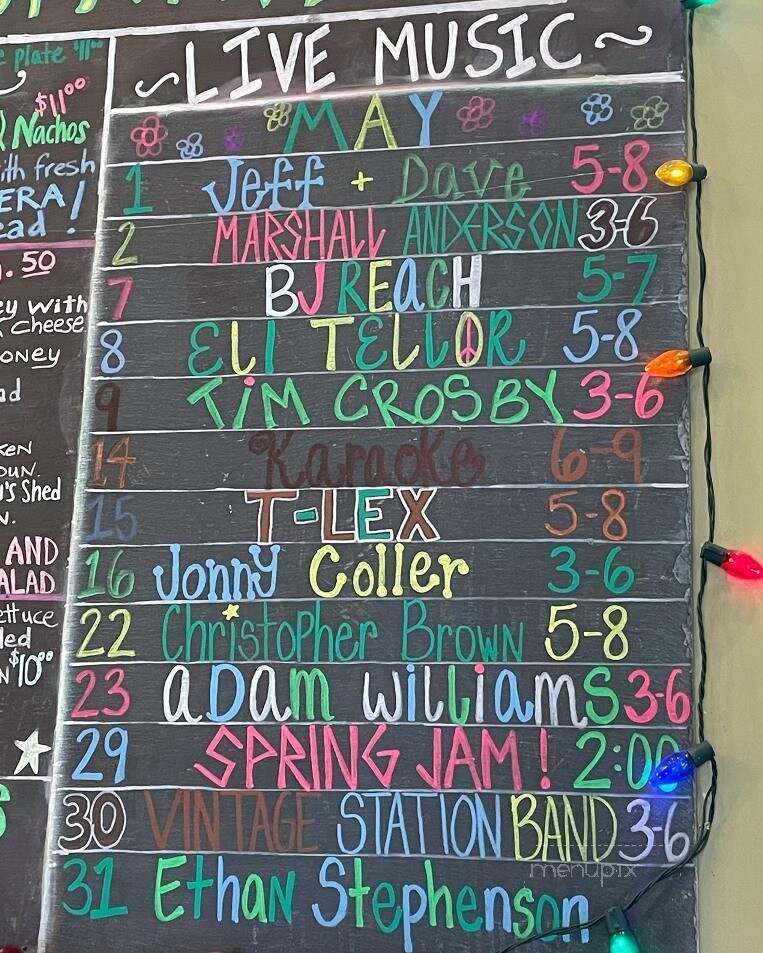 e plate 11⁰⁰
$11⁰⁰
Nachos
ith fresh
ERA!
ead!
.50
ey with
Cheese
oney
ad
KEN
OUN.
u's Shed
N.
AND
ALAD
ettuce
led
N $10⁰⁰
~LIVE MUSIC~
MAY
1 Jeff + Dave 5-8
2 MARSHALL ANDERSON 3-6
7 BJ REACH 5-7
8 ELI TELLOR 5-8
9 TIM CROSBY 3-6
14 Karaoke 6-9
15 T-LEX 5-8
16 Jonny Coller 3-6
22 Christopher Brown 5-8
23 aDam williamS 3-6
29 SPRING JAM! 2:00
30 VINTAGE STATION BAND 3-6
31 Ethan Stephenson
menupix